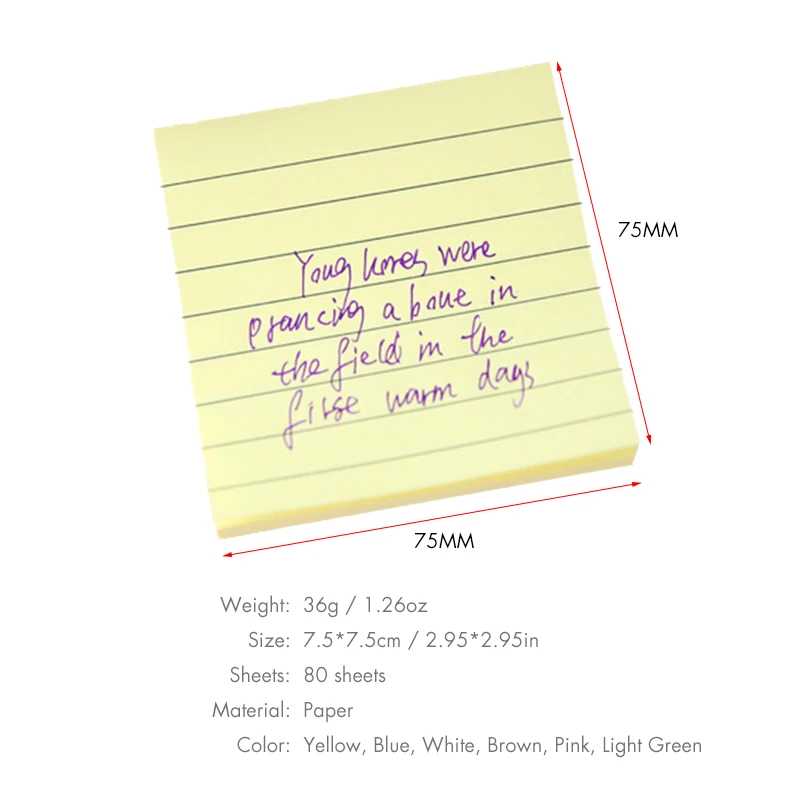 Young horses were
prancing a bout in
the field in the
first warm days
75MM
75MM
Weight: 36g / 1.26oz
Size: 7.5*7.5cm / 2.95*2.95in
Sheets: 80 sheets
Material: Paper
Color: Yellow, Blue, White, Brown, Pink, Light Green